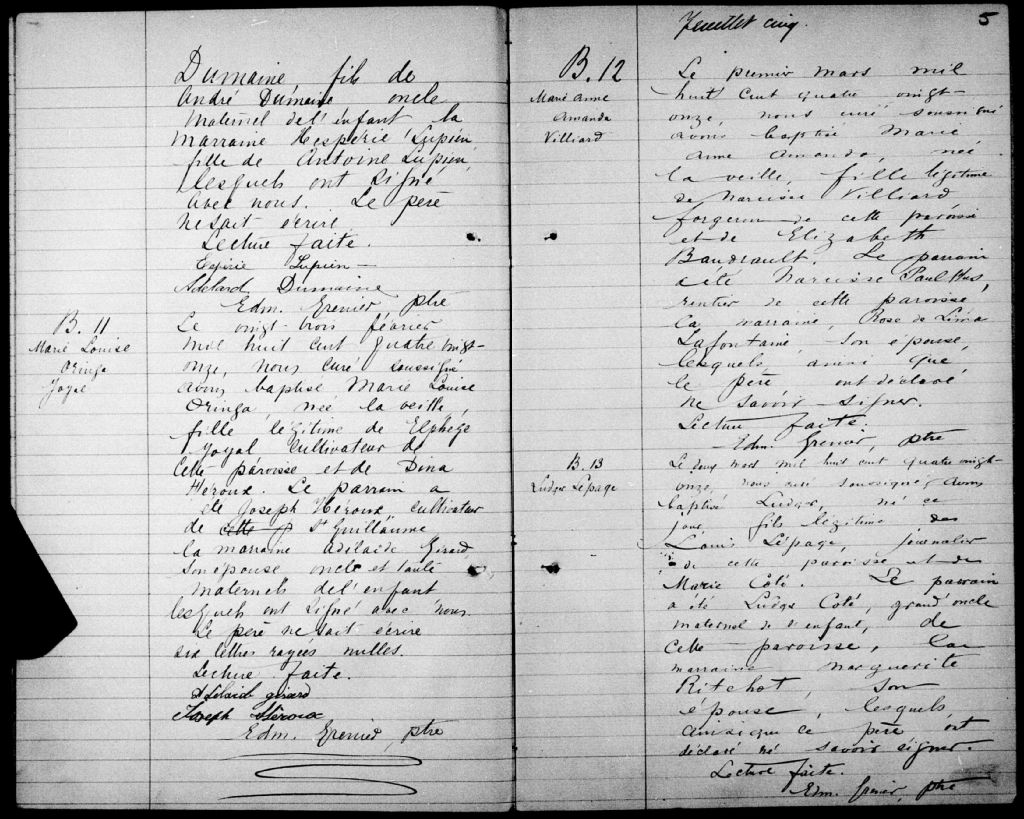 Dumaine fils de
André Dumaine oncle
maternel de l'enfant la
marraine Hespérie Lupien
fille de Antoine Lupien,
lesquels ont signé
avec nous. Le père
ne sait écrire
Lecture faite.
Espérie Lupien
Adélard Dumaine
Edm. Grenier ptre
B. 11
Marie Louise
Oringa
Joyal
Le vingt-trois février
mil huit cent quatre vingt-
onze, nous curé soussigné
avons baptisé Marie Louise
Oringa, née la veille,
fille légitime de Elphège
Joyal cultivateur de
cette paroisse et de Dina
Héroux. Le parrain a
été Joseph Héroux cultivateur
de cette p St Guillaume
la marraine Adélaïde Girard,
son épouse oncle et tante
maternels de l'enfant
lesquels ont signé avec nous
Le père ne sait écrire
six lettres rayées nulles.
Lecture faite.
Adélaide girard
Joseph Héroux
Edm. Grenier, ptre
Feuillet cinq.
5
B. 12
Marie Anne
Amanda
Villiard
Le premier mars mil
huit cent quatre vingt-
onze, nous curé soussigné
avons baptisé Marie
Anne Amanda, née
la veille, fille légitime
de Narcisse Villiard
forgeron de cette paroisse
et de Elizabeth
Baudrault. Le parrain
a été Narcisse Paul Hus,
rentier de cette paroisse,
la marraine, Rose de Lima
Lafontaine, son épouse,
lesquels, ainsi que
le père, ont déclaré
ne savoir signer.
Lecture faite.
Edm. Grenier, ptre
B. 13
Ludger Lépage
Le deux mars mil huit cent quatre vingt-
onze, nous curé soussigné, avons
baptisé Ludger, né ce
jour, fils légitime des
Louis Lépage, journalier
de cette paroisse et de
Marie Coté. Le parrain
a été Ludger Coté, grand'oncle
maternel de l'enfant, de
cette paroisse, la
marraine Marguerite
Ritchot, son
épouse, lesquels
ainsi que le père ont
déclaré ne savoir signer.
Lecture faite.
Edm. Grenier, ptre